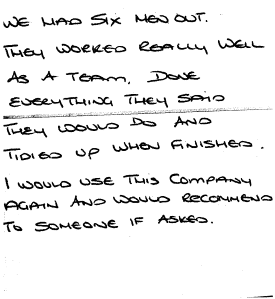 WE HAD SIX MEN OUT.
THEY WORKED REALLY WELL
AS A TEAM, DONE
EVERYTHING THEY SAID
THEY WOULD DO AND
TIDIED UP WHEN FINISHED.
I WOULD USE THIS COMPANY
AGAIN AND WOULD RECOMMEND
TO SOMEONE IF ASKED.